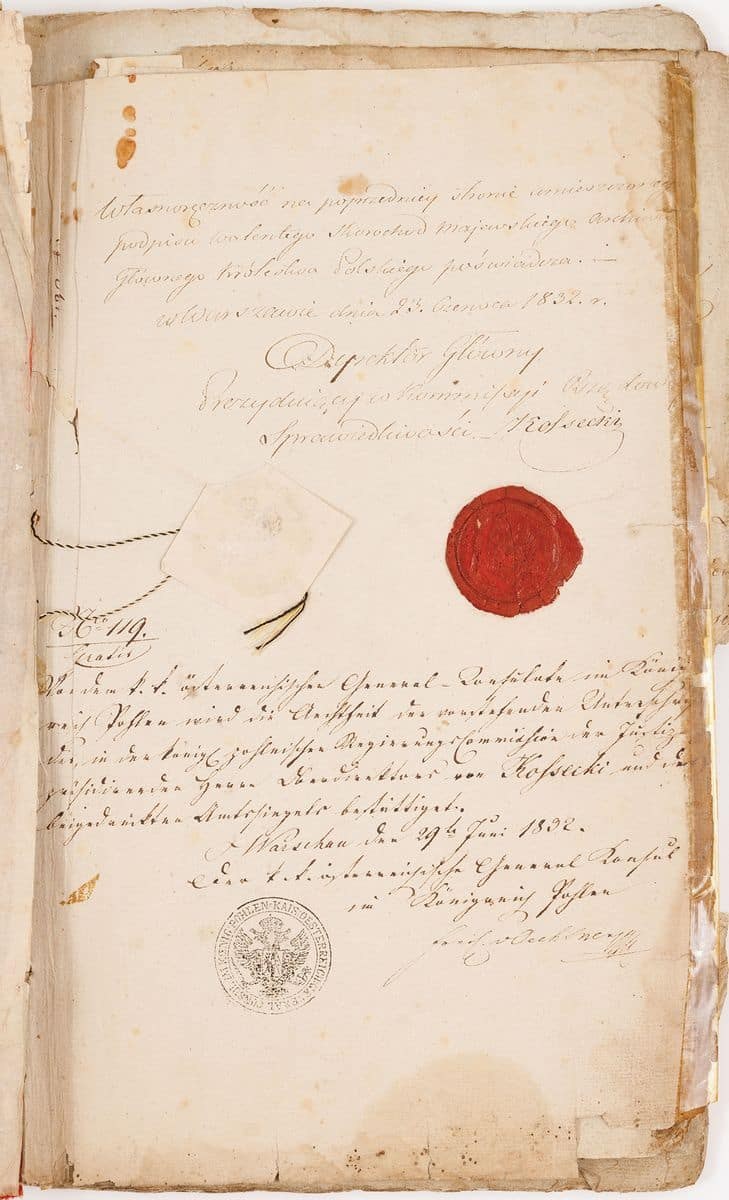 Własnoręczność na poprzedniey stronie umieszczonego
podpisu Walentego Skorochod Majewskiego Archiwisty
Głównego Królestwa Polskiego poświadcza. –
w Warszawie dnia 23. Czerwca 1832. r.
Dyrektor Główny
Prezyduiący w Kommissyi Rządowey
Sprawiedliwości – Kossecki
No 119.
Gratis
Von dem k. k. österreichischen General-Konsulate im König-
reich Pohlen wird die Aechtheit der vorstehenden Unterschrift
des, in der königl. pohlnischen Regierungs Commission der Justiz
präsidirenden Herrn Oberdirektors von Kossecki und des
beigedruckten Amtssiegels bestättiget.
Warschau den 29ten Juni 1832.
Der k. k. österreichische General Konsul
im Königreich Pohlen